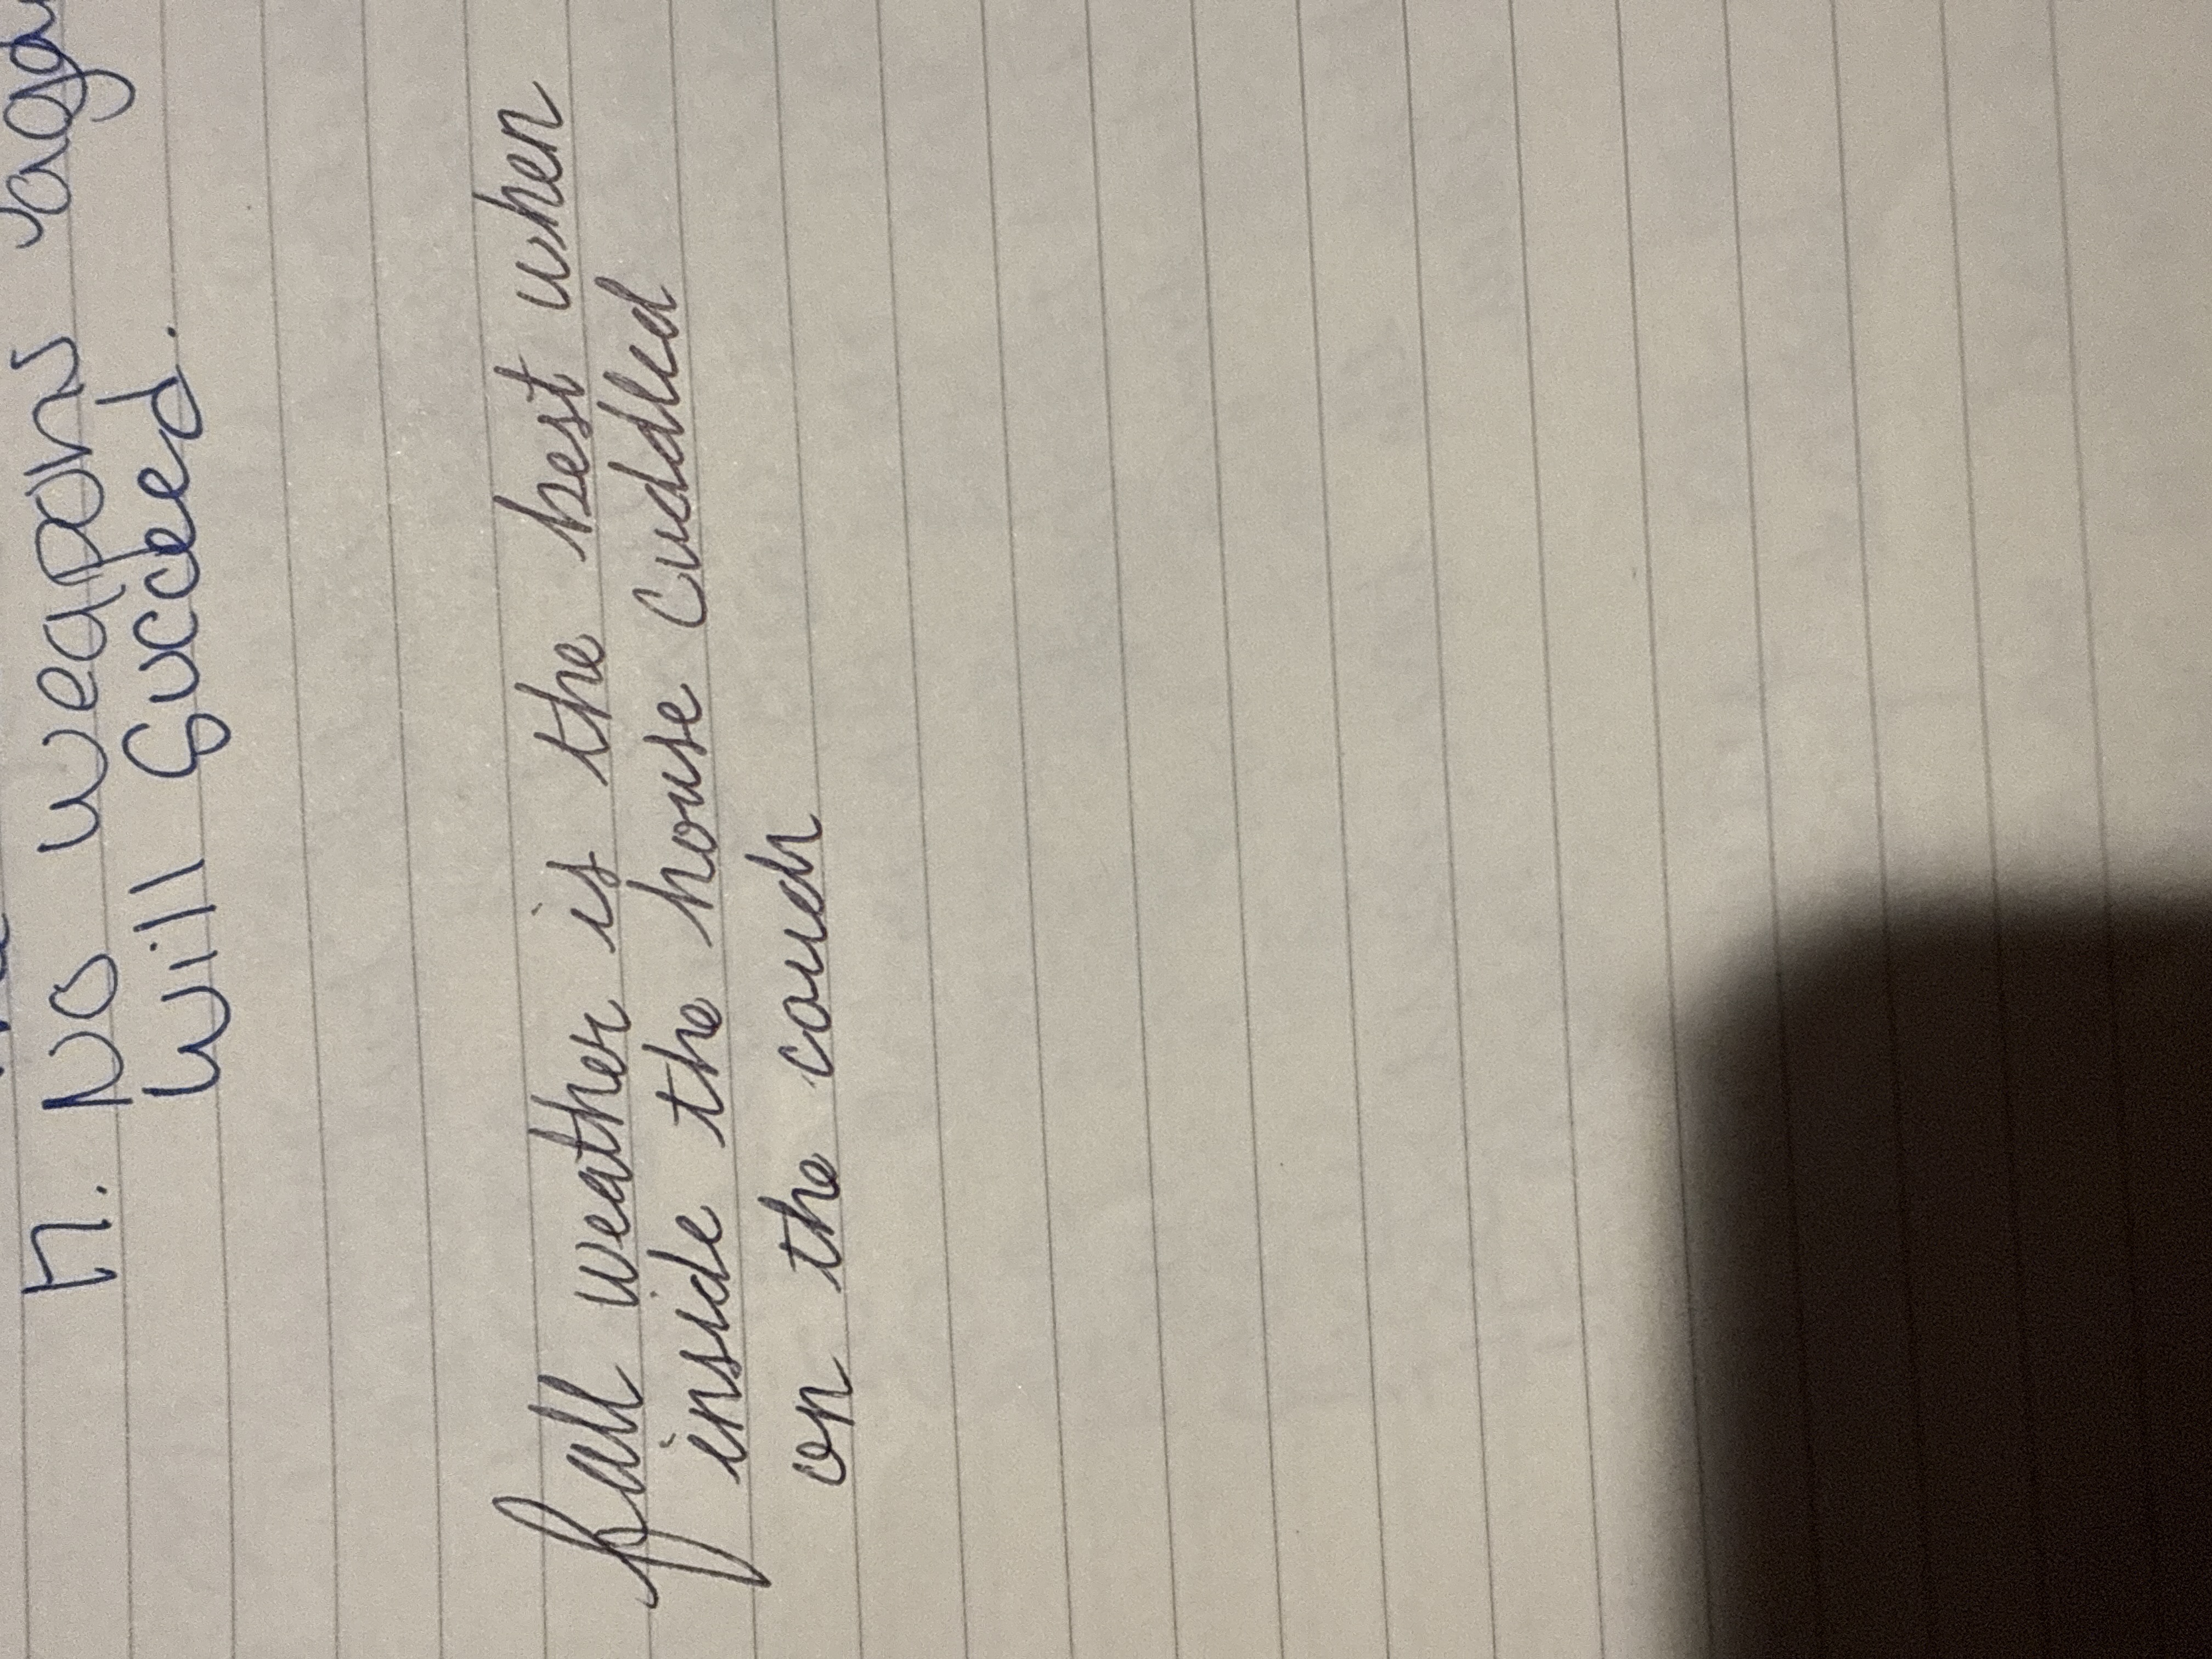 17. No weapons
will succeed.
fall weather is the best when
inside the house cuddled
on the couch